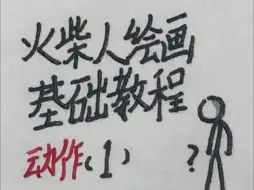 火柴人绘画
基础教程
动作(1)
?